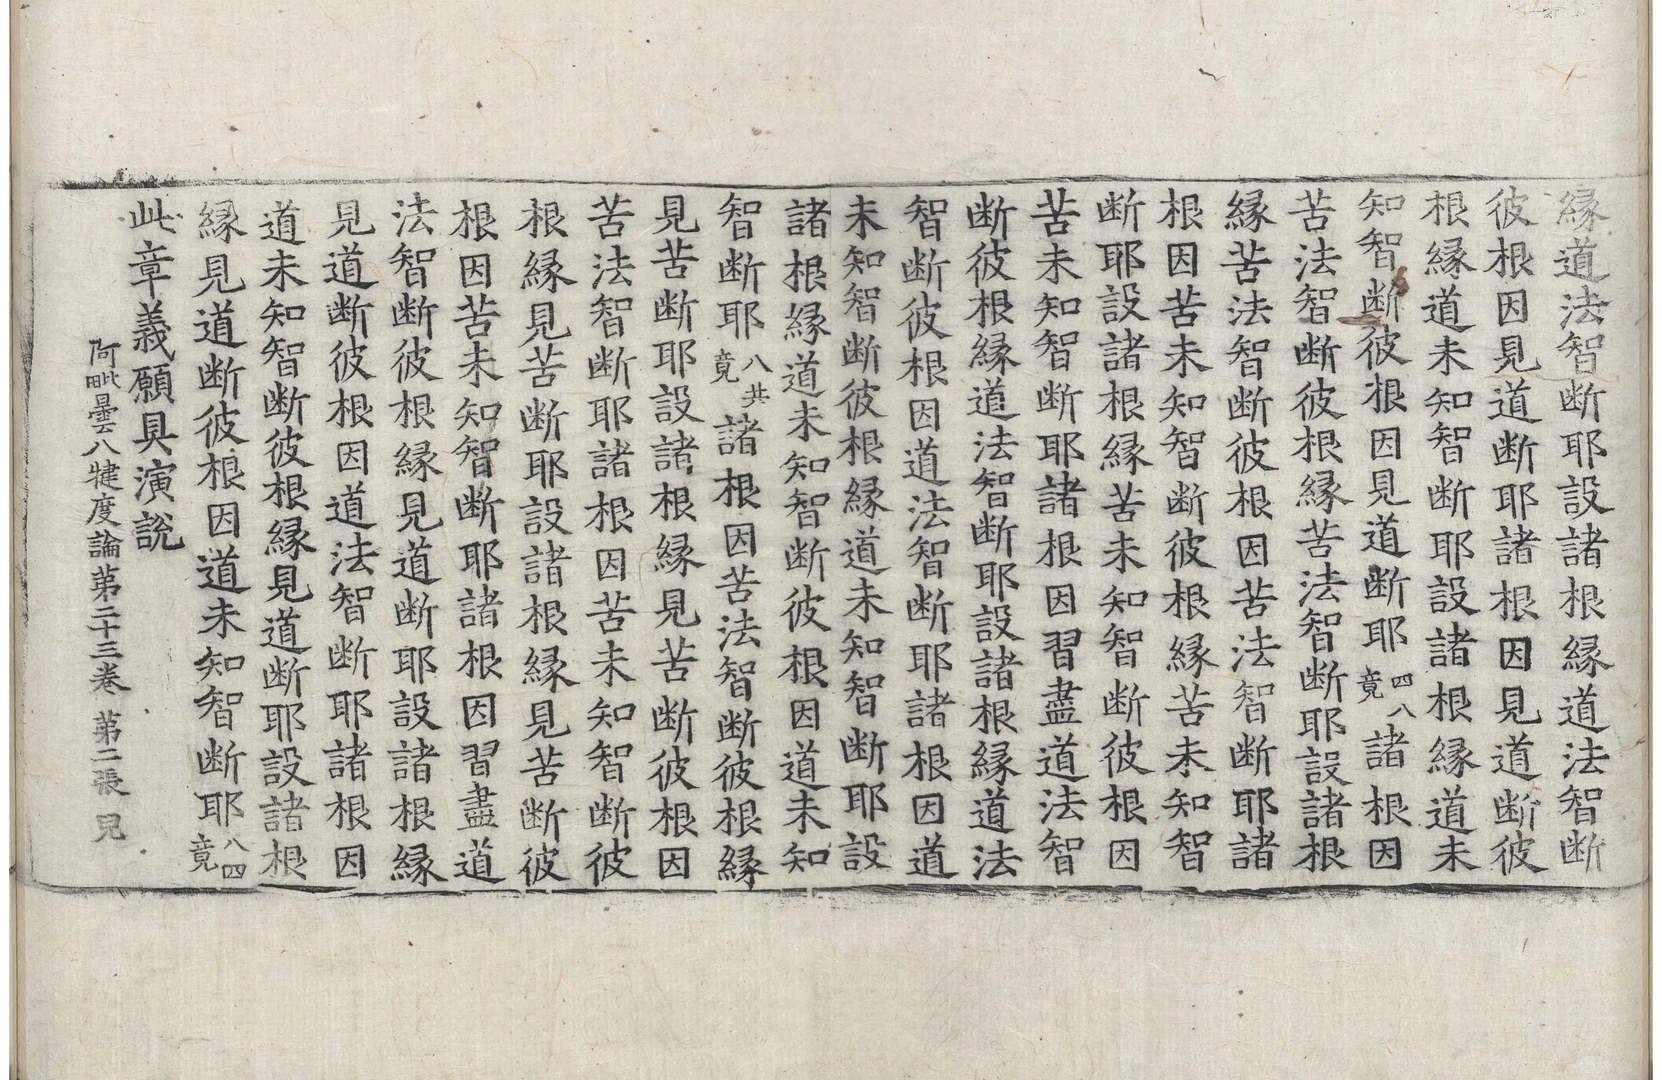 縁道法智断耶設諸根縁道法智断
彼根因見道断耶諸根因見道断彼
根縁道未知智断耶設諸根縁道未
知智断彼根因見道断耶四八竟諸根因
苦法智断彼根縁苦法智断耶設諸根
縁苦法智断彼根因苦法智断耶諸
根因苦未知智断彼根縁苦未知智
断耶設諸根縁苦未知智断彼根因
苦未知智断耶諸根因習盡道法智
断彼根縁道法智断耶設諸根縁道法
智断彼根因道法智断耶諸根因道
未知智断彼根縁道未知智断耶設
諸根縁道未知智断彼根因道未知
智断耶八共竟諸根因苦法智断彼根縁
見苦断耶設諸根縁見苦断彼根因
苦法智断耶諸根因苦未知智断彼
根縁見苦断耶設諸根縁見苦断彼
根因苦未知智断耶諸根因習盡道
法智断彼根縁見道断耶設諸根縁
見道断彼根因道法智断耶諸根因
道未知智断彼根縁見道断耶設諸根
縁見道断彼根因道未知智断耶八四竟
此章義願具演說
阿毗曇八犍度論第二十三卷 第二張 見